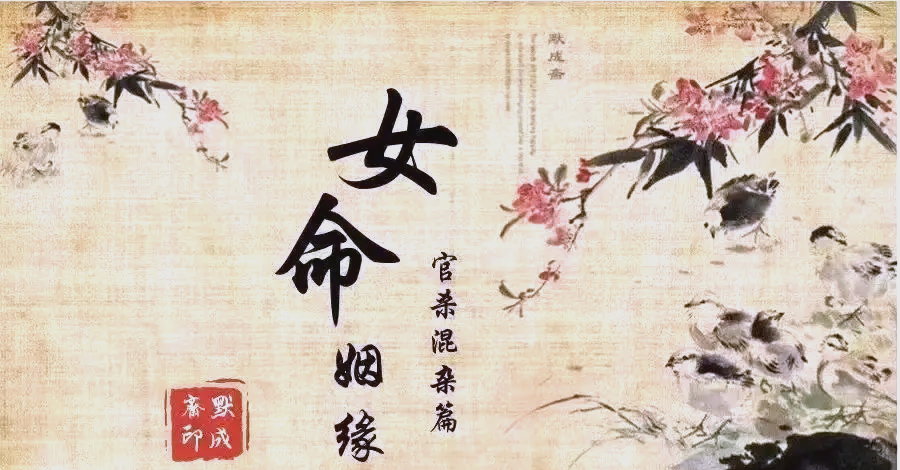 女命姻缘
官杀混杂篇
默成斋
默成
斋印